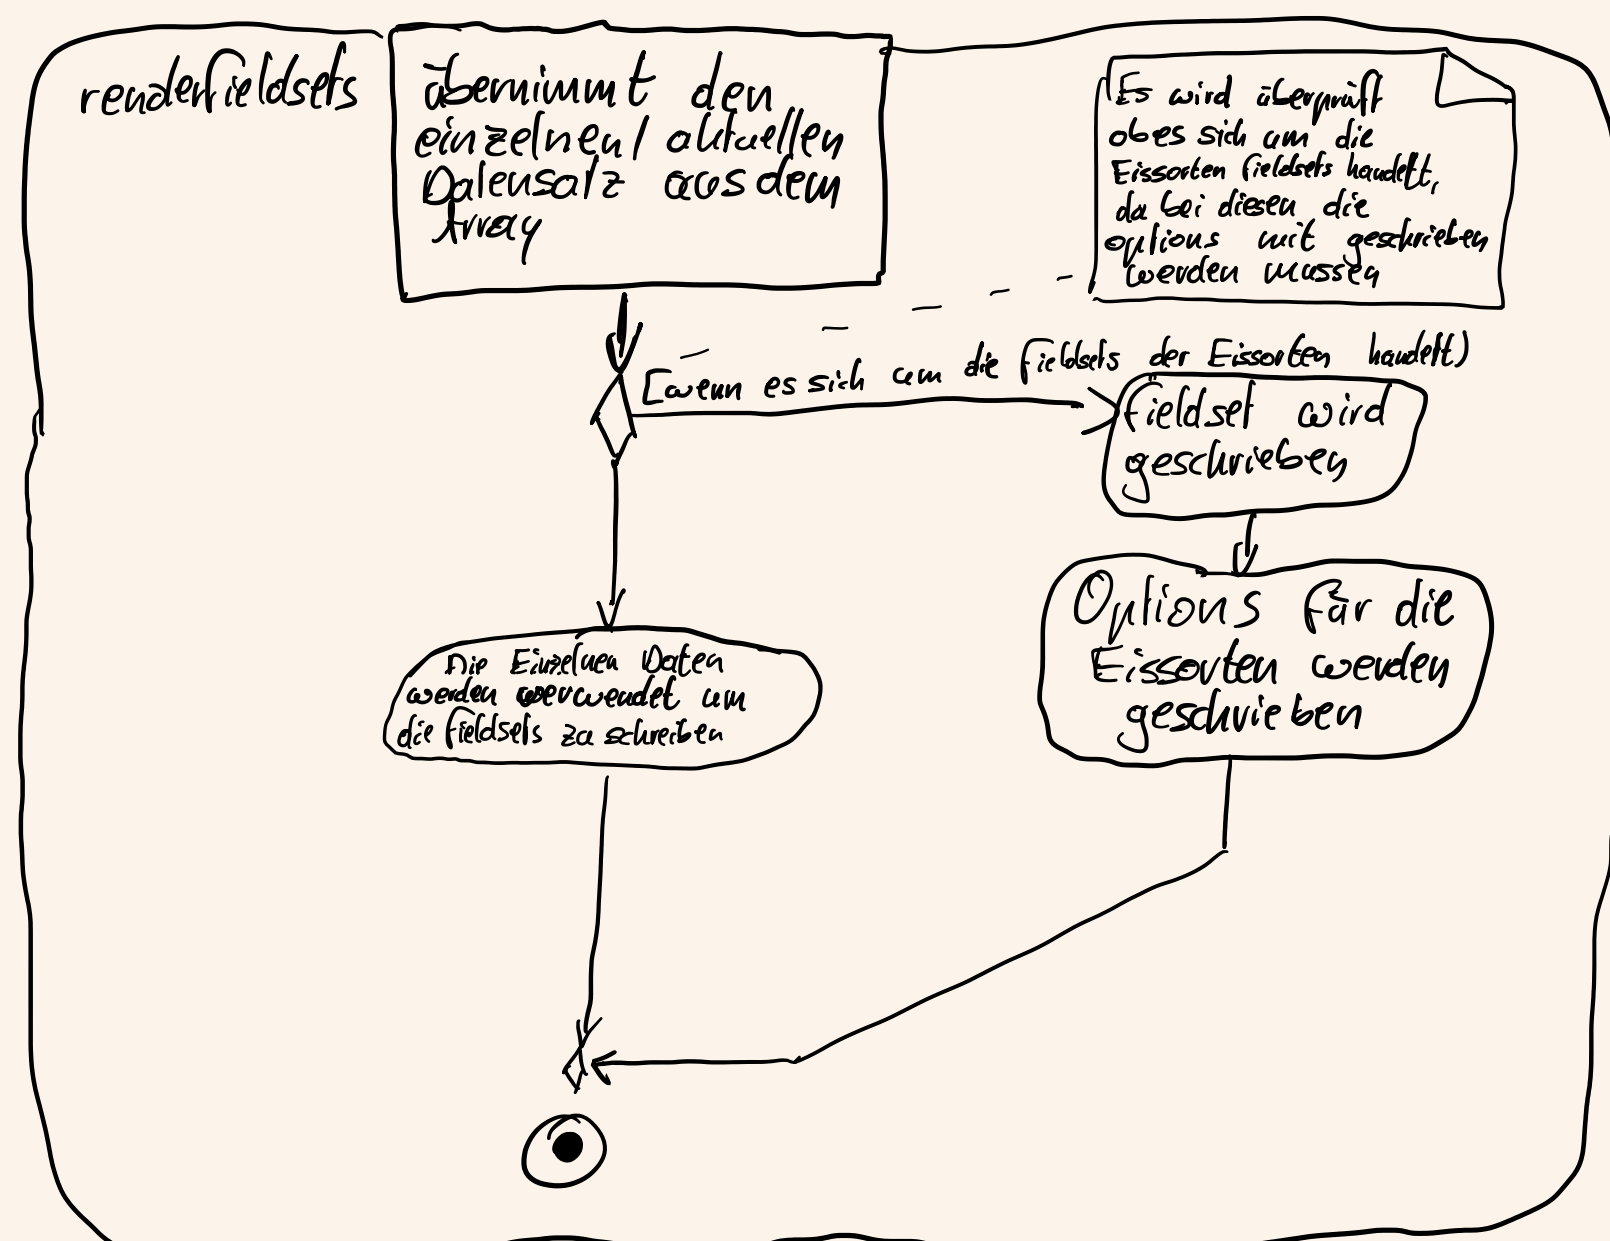 renderfieldsets
übernimmt den
einzelnen / aktuellen
Datensatz aus dem
Array
Es wird überprüft
ob es sich um die
Eissorten fieldsets handelt,
da bei diesen die
options mit geschrieben
werden müssen
[wenn es sich um die fieldsets der Eissorten handelt)
fieldset wird
geschrieben
Options für die
Eissorten werden
geschrieben
Die Einzelnen Daten
werden verwendet um
die fieldsets zu schreiben